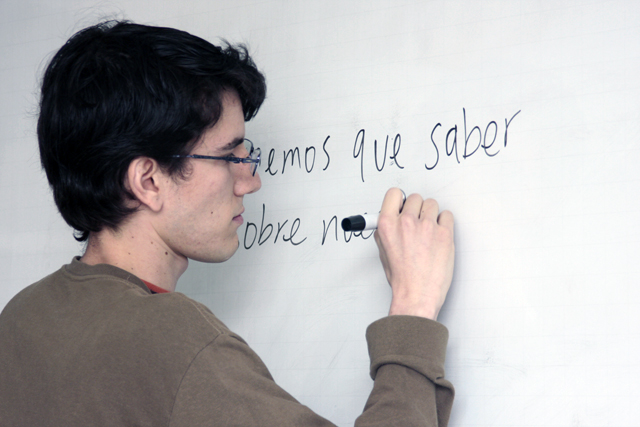 emos que saber
obre nu